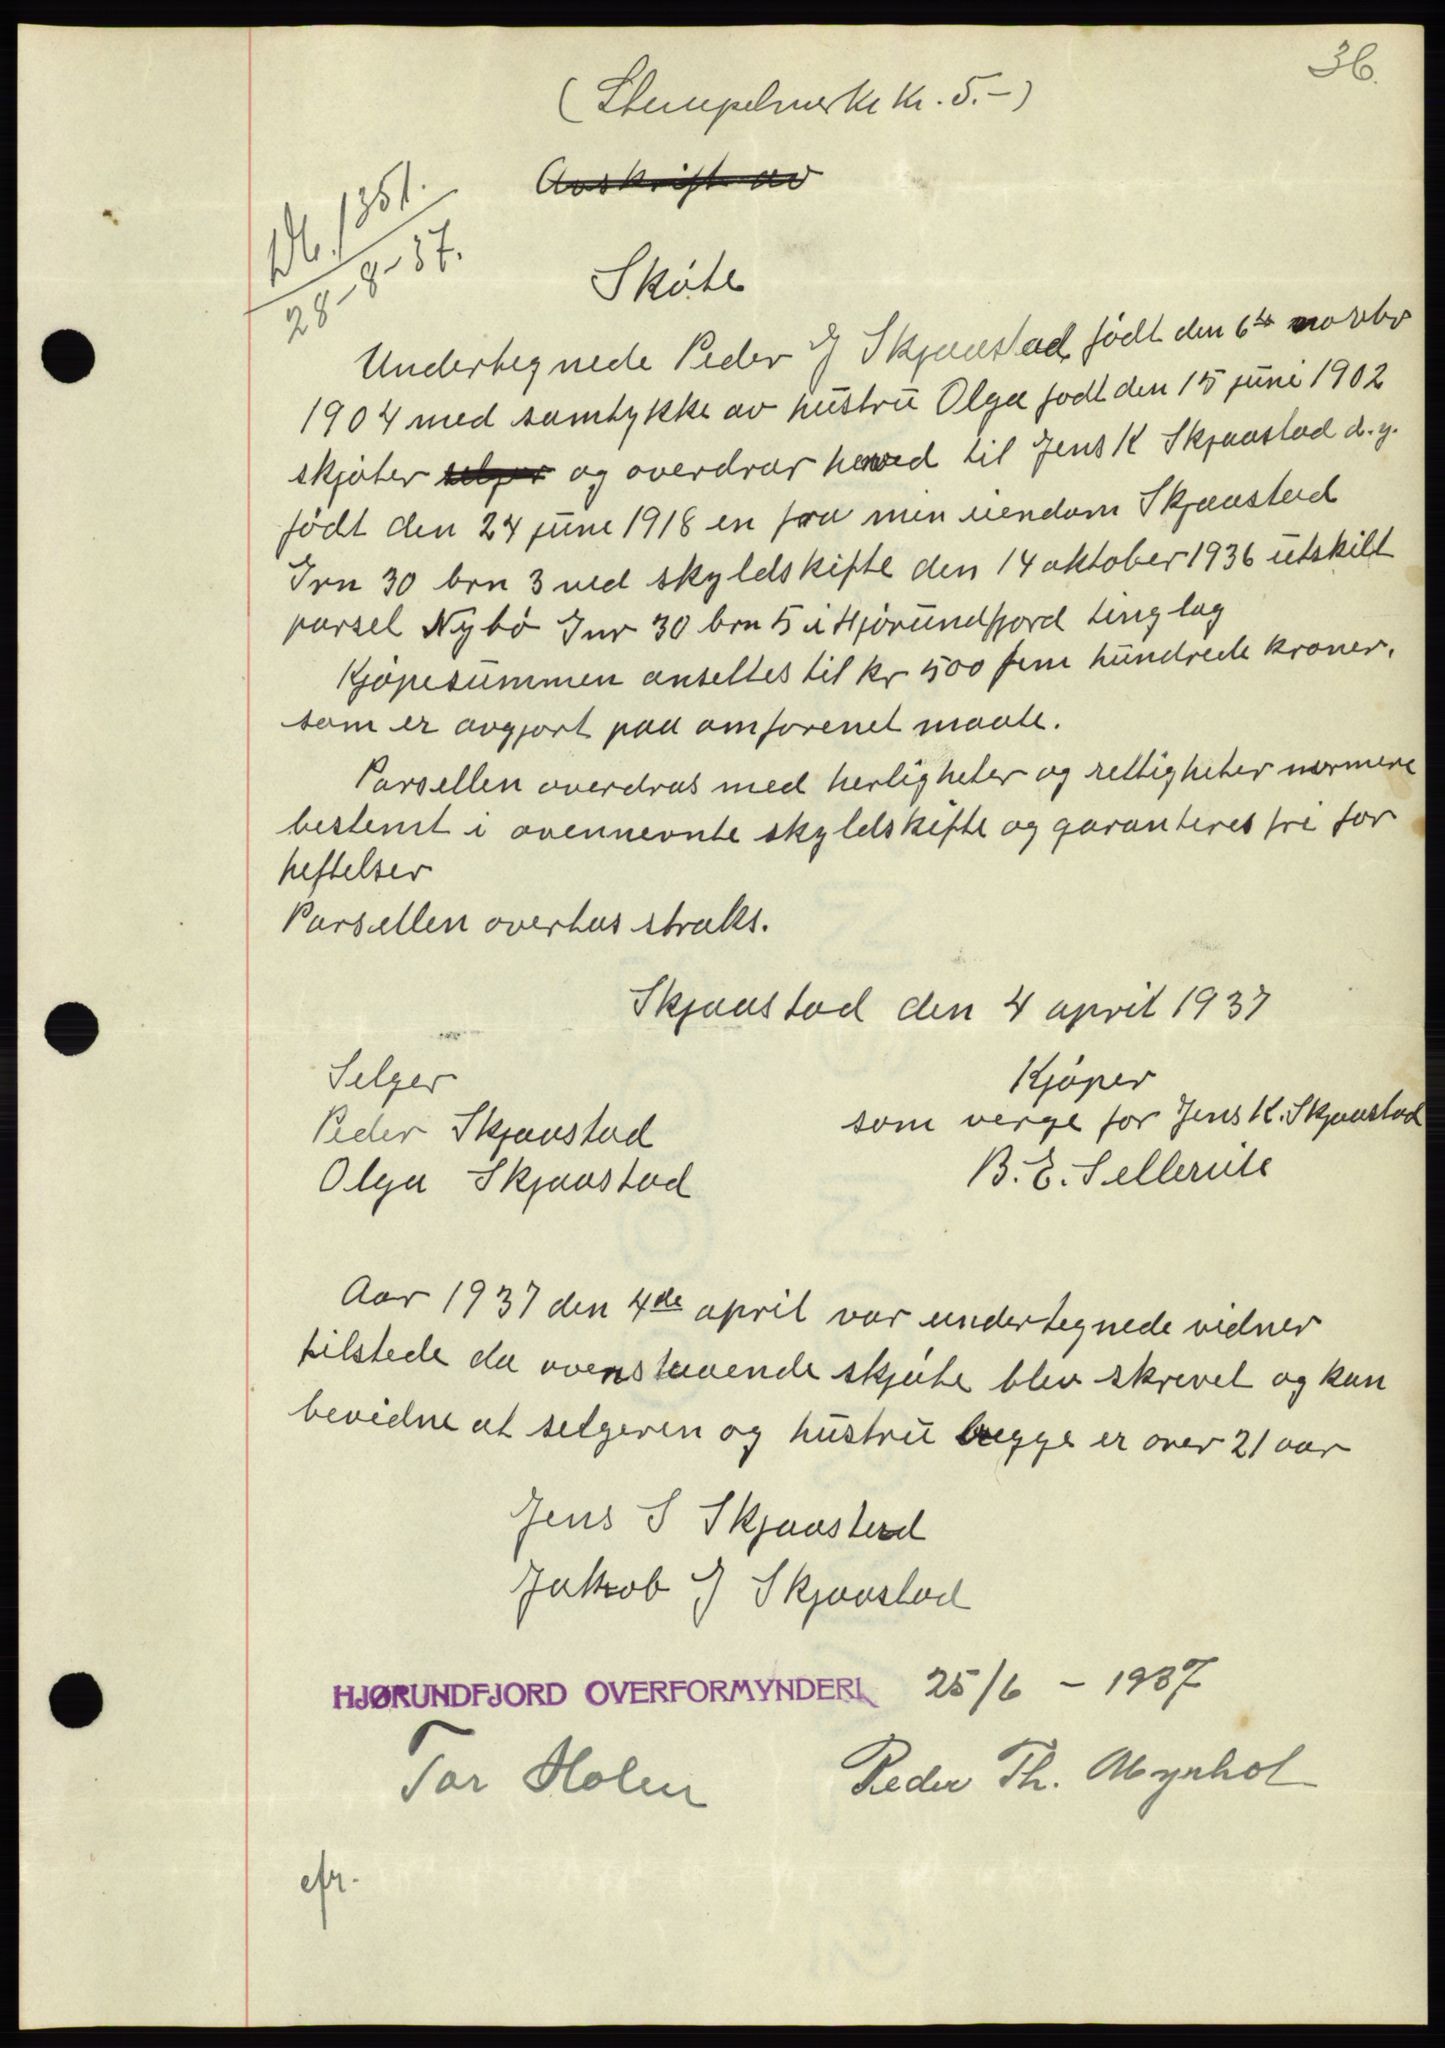 36.
(Stempelmerke kr. 5.-)
Avskrift av
Db. 1351.
28-8-37.
Skøte
Undertegnede Peder J Skjaastad født den 6te novbr
1904 med samtykke av hustru Olga født den 15 juni 1902
skjøter selger og overdrar herved til Jens K Skjaastad d.y.
født den 24 juni 1918 en fra min eiendom Skjaastad
Grn 30 brn 3 ved skyldskifte den 14 oktober 1936 utskilt
parsel Nybø Gnr 30 brn 5 i Hjørundfjord tinglag
Kjøpesummen ansettes til kr 500 fem hundrede kroner,
som er avgjort paa omforenet maate.
Parsellen overdras med herligheter og rettigheter nærmere
bestemt i ovennevnte skyldskifte og garanteres fri for
heftelser
Parsellen overtas straks.
Skjaastad den 4 april 1937
Selger
Peder Skjaastad
Olga Skjaastad
Kjøper
som verge for Jens K. Skjaastad
B. E. Sellereite
Aar 1937 den 4de april var undertegnede vidner
tilstede da ovenstaaende skjøte blev skrevet og kan
bevidne at selgeren og hustru begge er over 21 aar
Jens S Skjaastad
Jakob J Skjaastad
HJØRUNDFJORD OVERFORMYNDERI 25/6 - 1937
Tor Holen
Peder Th. Myrhol